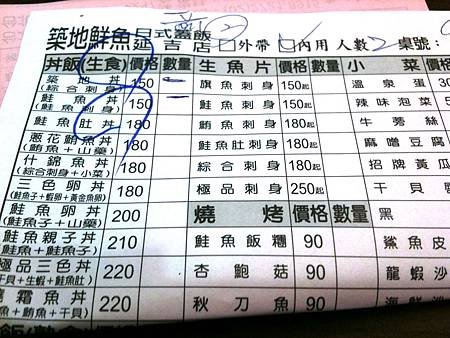 築地鮮魚 日式蓋飯
延吉店 □外帶 □內用 人數2 桌號:
丼飯(生食) 價格 數量 生魚片 價格 數量 小菜
築地丼 150 旗魚刺身 150起 溫泉蛋 30
(綜合刺身)
鮭魚丼 150 鮭魚刺身 150起 辣味泡菜 5
(鮭魚刺身)
鮭魚肚丼 180 鮪魚刺身 180起 牛蒡絲
蔥花鮪魚丼 180 鮭魚肚刺身 180起 麻嗆豆腐
(鮪魚+山藥)
什錦魚丼 180 綜合刺身 180起 招牌黃瓜
(綜合刺身+小菜)
三色卵丼 180 極品刺身 250起 干貝
(鮭魚子+蝦卵+黃金魚卵)
鮭魚卵丼 200 燒烤 價格 數量 黑
(鮭魚子+山藥)
鮭魚親子丼 210 鮭魚飯糰 90 鯊魚皮
(鮭魚+鮭魚子)
極品三色丼 220 杏鮑菇 90 龍蝦沙
干貝+生蝦+鮭魚肚)
霜鮪丼 220 秋刀魚 90 海鮮沙
魚+鮪魚+干貝)